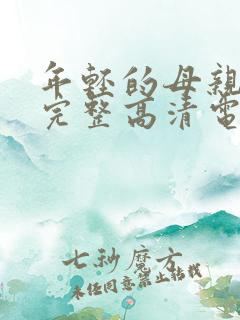 年轻的母親
完整高清電
七秒魔方
未经同意禁止转载